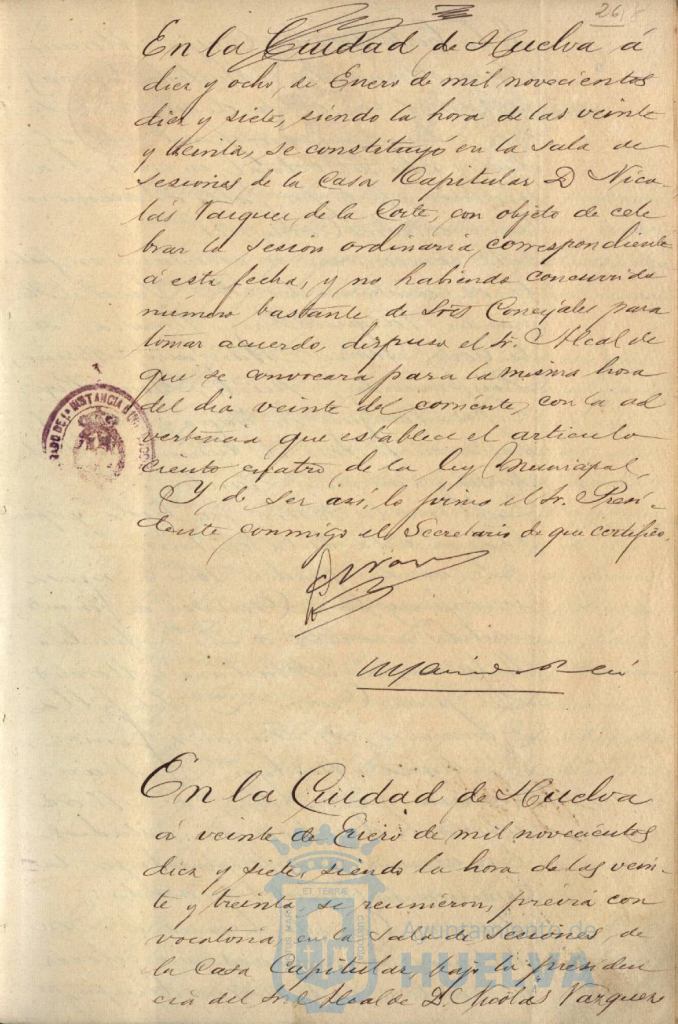 268
En la Ciudad de Huelva á
diez y ocho, de Enero de mil novecientos
diez y siete, siendo la hora de las veinte
y treinta, se constituyó en la sala de
sesiones de la Casa Capitular D Nico-
lás Vazquez de la Corte, con objeto de cele
brar la sesión ordinaria correspondiente
á esta fecha, y no habiendo concurrido
número bastante de Sres Concejales para
tomar acuerdo, dispuso el Sr. Alcalde
que se convocara para la misma hora
del dia veinte del corriente, con la ad
vertencia que establece el articulo
ciento cuatro de la ley Municipal,
Y de ser así, lo firma el Sr. Presi-
dente conmigo el Secretario de que certifico.
INSTANCIA
En la Ciudad de Huelva
á veinte de Enero de mil novecientos
diez y siete, siendo la hora de las vein-
te y treinta, se reunieron, previa con
vocatoria, en la sala de sesiones, de
la Casa Capitular, bajo la presiden
cia del Sr. Alcalde D. Nicolás Vazquez
Ayuntamiento de
HUELVA